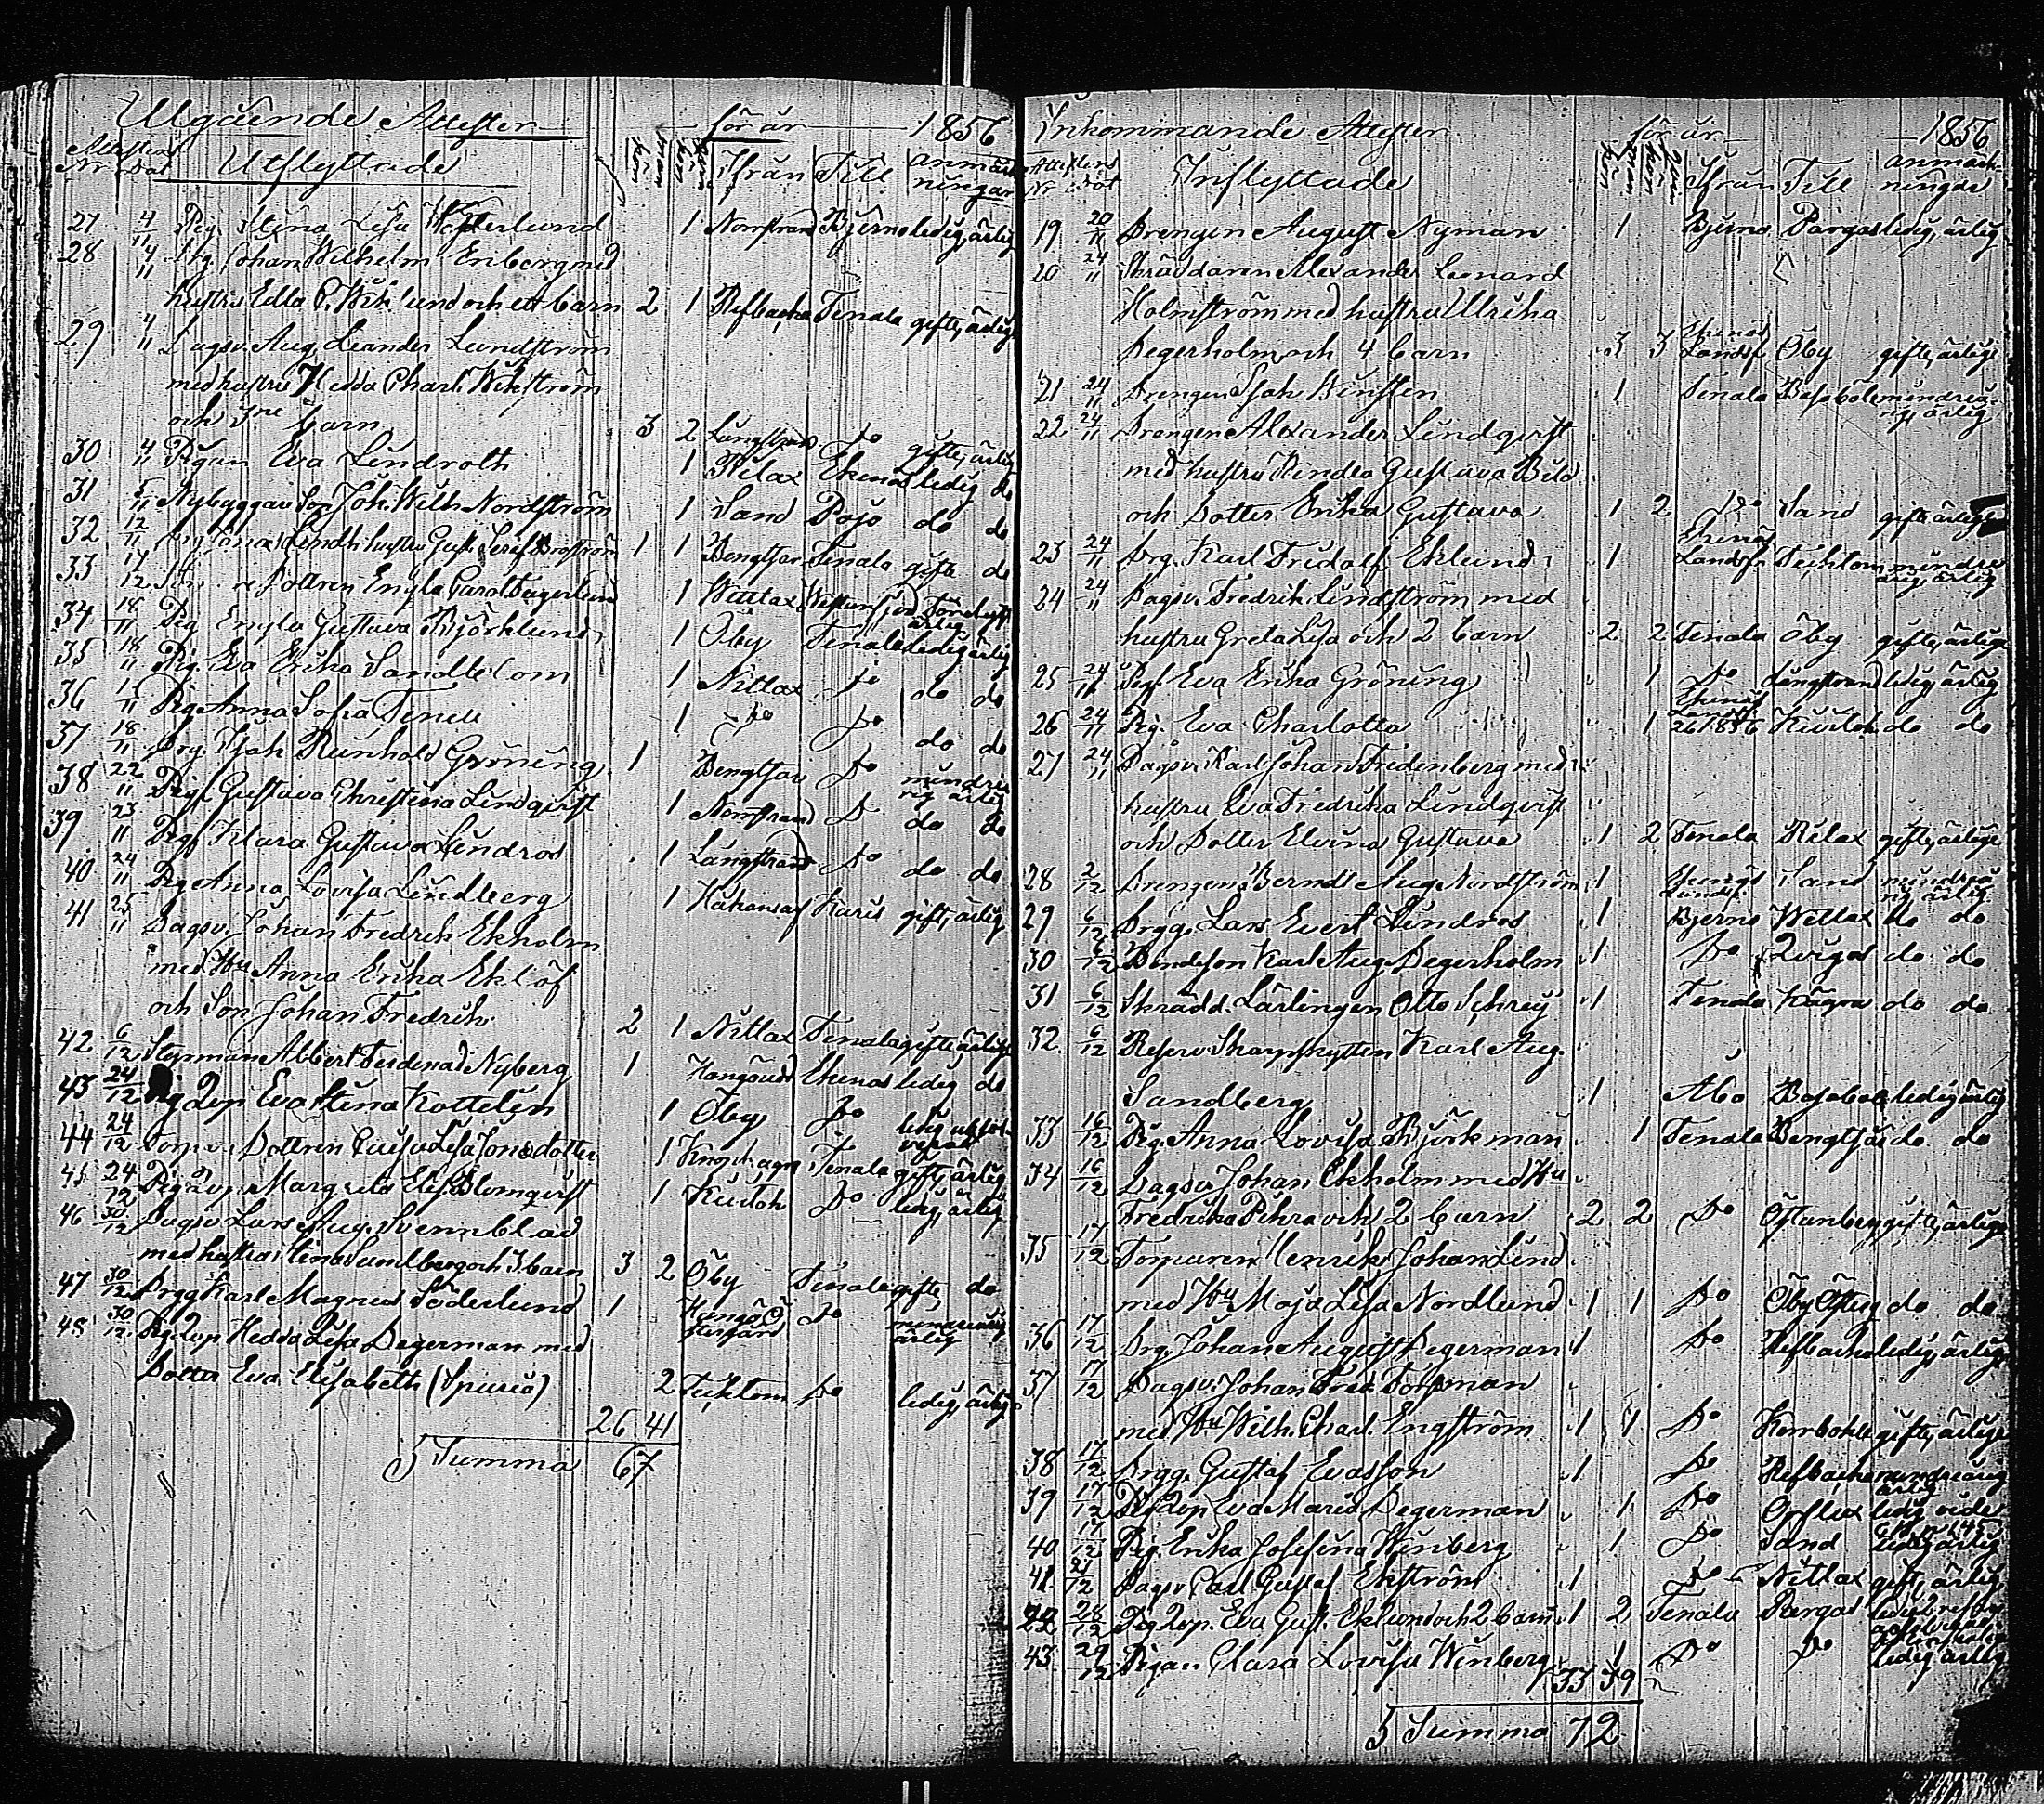 Utgående Attester för år 1856
Attestens
Nr Dat Utflyttade Ifrån Till anmärk
ningar
27 4/11 Pig. Stina Lisa Westerlund 1 Norrstrand Bjerno ledig, ärlig
28 4/11 Drg Johan Wilhelm Enberg med
hustru Ulla C. Wiklund och ett barn 2 1 Refbacka Tenala gifte, ärlig
29 4/11 Dagsv. Aug. Leander Lundström
med hustru Hedda Charl. Wikström
och 3ne barn 3 2 Långstrand do gifte, ärlig
30 4/11 Pigan Eva Lindroth 1 Rilax Ekenäs ledig do
31 5/11 Nybyggar Son Joh. Wilh. Nordström 1 Sand Pojo do do
32 12/11 Lindh hustru Gust. Josef. Broström 1 1 Bengtsar Tenala gifte do
33 17/12 Dottren Emyla Carol. Fagerlund 1 Wittlax
34 18/11 Pig Emyla Gustava Björklund 1 Öby Tenala ledig ärlig
35 18/11 Pig. Eva Erika Sandbe 1 Nitlax do do do
36 Pig Anna Sofia 1 do do do do
37 18/11 Drg. Isak Reinhold Gröning 1 Bengtsar do mindreå
rig ärlig
38 22/11 Pig Gustava Christina Lindqvist 1 Norrstrand do do do
39 23/11 Pig Klara Gustava Lindros 1 Långstrand do do do
40 24/11 Pig Anna Lovisa Lindberg 1 Håkansar Karis gift, ärlig
41 25/11 Dagsv. Johan Fredrik Ekholm
med Hu Anna Erika Eklöf
och Son Johan Fredrik 2 1 Nitlax Tenala gifte, ärlige
42 6/12 Styrman Albert Ferdinand Nyberg 1 Hangöudd Ekenäs ledig do
43 24/12 Pig Qvp Eva Stina Kottelin 1 Öby do
44 24/12 Dottren Lisa Jonsdotter 1 Tenala gift, ärlig
45 24/12 Pig Qvp. Margreta Elis. Blomqvist 1 Kuulok do ledig, ärlig
46 30/12 Dagsv Lars Aug. Svennblad
med hustru Stina Sundberg och 3 barn 3 2 Öby Tenala gifte, do
47 30/12 Drgg Karl Magnus Söderlund 1 Hangö Ö
sterfjärd do mindreårig
ärlig
48 30/12 Pig Qvp Hedda Lisa Degerman med
Dotter Eva Elisabeth (Spuria) 2 Tecktom do ledig, ärlig
26 41
S Summa 67
Inkommande Attester för år 1856
Attestens
Nr Dat Inflyttade Ifrån Till anmärk-
ningar
19 20/11 Drengen August Nyman 1 Bjerno Pargas ledig, ärlig
20 24/11 Skräddaren Alexander Leonard
Holmström med hustru Ulrika
Degerholm och 4 barn 3 3 Ekenäs
Landsf. Öby gifte, ärlige
21 24/11 Drengen Isak Winsten 1 Tenala Basaböle mindreå-
rig ärlig
22 24/11 Drengen Alexander Lindqvist
med hustru Hindla Gustava Bild
och Dotter Erika Gustava 1 2 Do Sand gifte ärlige
23 24/11 Drg. Karl Fridolf Eklund 1 Ekenäs
Landsf. Tecktom mindre
årig ärlig
24 24/11 Dagsv. Fredrik Lindström med
hustru Greta Lisa och 2 barn 2 2 Tenala Öby gifte, ärlige
25 24/11 Pig. Eva Erika Gröning 1 Do Långstrand ledig ärlig
26 24/11 Pig. Eva Charlotta 1 Ekenäs
Landsf.
26/1856 Kuulok do do
27 24/11 Dagsv. Karl Johan Fridenberg med
hustru Eva Fredrika Lindqvist
och Dotter Elvina Gustava 1 2 Tenala Rilax gifte, ärlige
28 2/12 Drengen Berndt Aug. Nordström 1 Ekenäs
Landsf. Sand mindreå
rig ärlig
29 6/12 Drgg. Lars Evert Lindros 1 Bjerno Wittlax do do
30 6/12 Bondeson Karl Aug. Degerholm 1 Do do do
31 6/12 Skrädd. Lärlingen Otto Schrey 1 Tenala Kägra do do
32 6/12 Reserv. Skarpskytten Karl Aug.
Sandberg 1 Åbo Basaböle ledig ärlig
33 16/12 Pig. Anna Lovisa Björkman 1 Tenala Bengtsår do do
34 16/12 Dagsv Johan Ekholm med Hu
Fredrika Pihra och 2 barn 2 2 Do Östanberg gifte, ärlige
35 17/12 Torparen Henrik Johan Lind
med Hu Maja Lisa Nordlund 1 1 Do Öby do do
36 17/12 Drg. Johan August Degerman 1 Do Refbacka ledig, ärlig
37 17/12 Dagsv. Johan Fred. Forsman
med Hu Wilh. Charl. Engström 1 1 Do gifte, ärlige
38 17/12 Drgg. Gustaf Evasson 1 Do Refbacka mindreårig
ärlig
39 17/12 Pig Qvp Eva Maria Degerman 1 Do ledig
40 17/12 Pig. Erika Josefina Winberg 1 Do Sand ledig ärlig
41 21/12 Dagsv Carl Gustaf Ekström 1 Do Nitlax gift, ärlig
42 28/12 Pig Qvp. Eva Gust. Eklund och 2 barn 1 2 Tenala Pargas
43 29/12 Pigan Clara Lovisa Winberg 1 Do Do ledig ärlig
33 39
S Summa 72